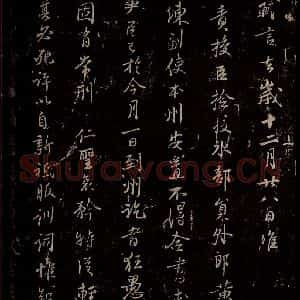 軾言去歲十二月廿八日准
責授臣檢校水部員外郎
練副使本州安置不得僉書
事臣已於今月一日到州訖者狂愚
固有常刑仁聖哀矜特從輕
其必死許以自新祗服訓詞惟知
Shufawang.CN